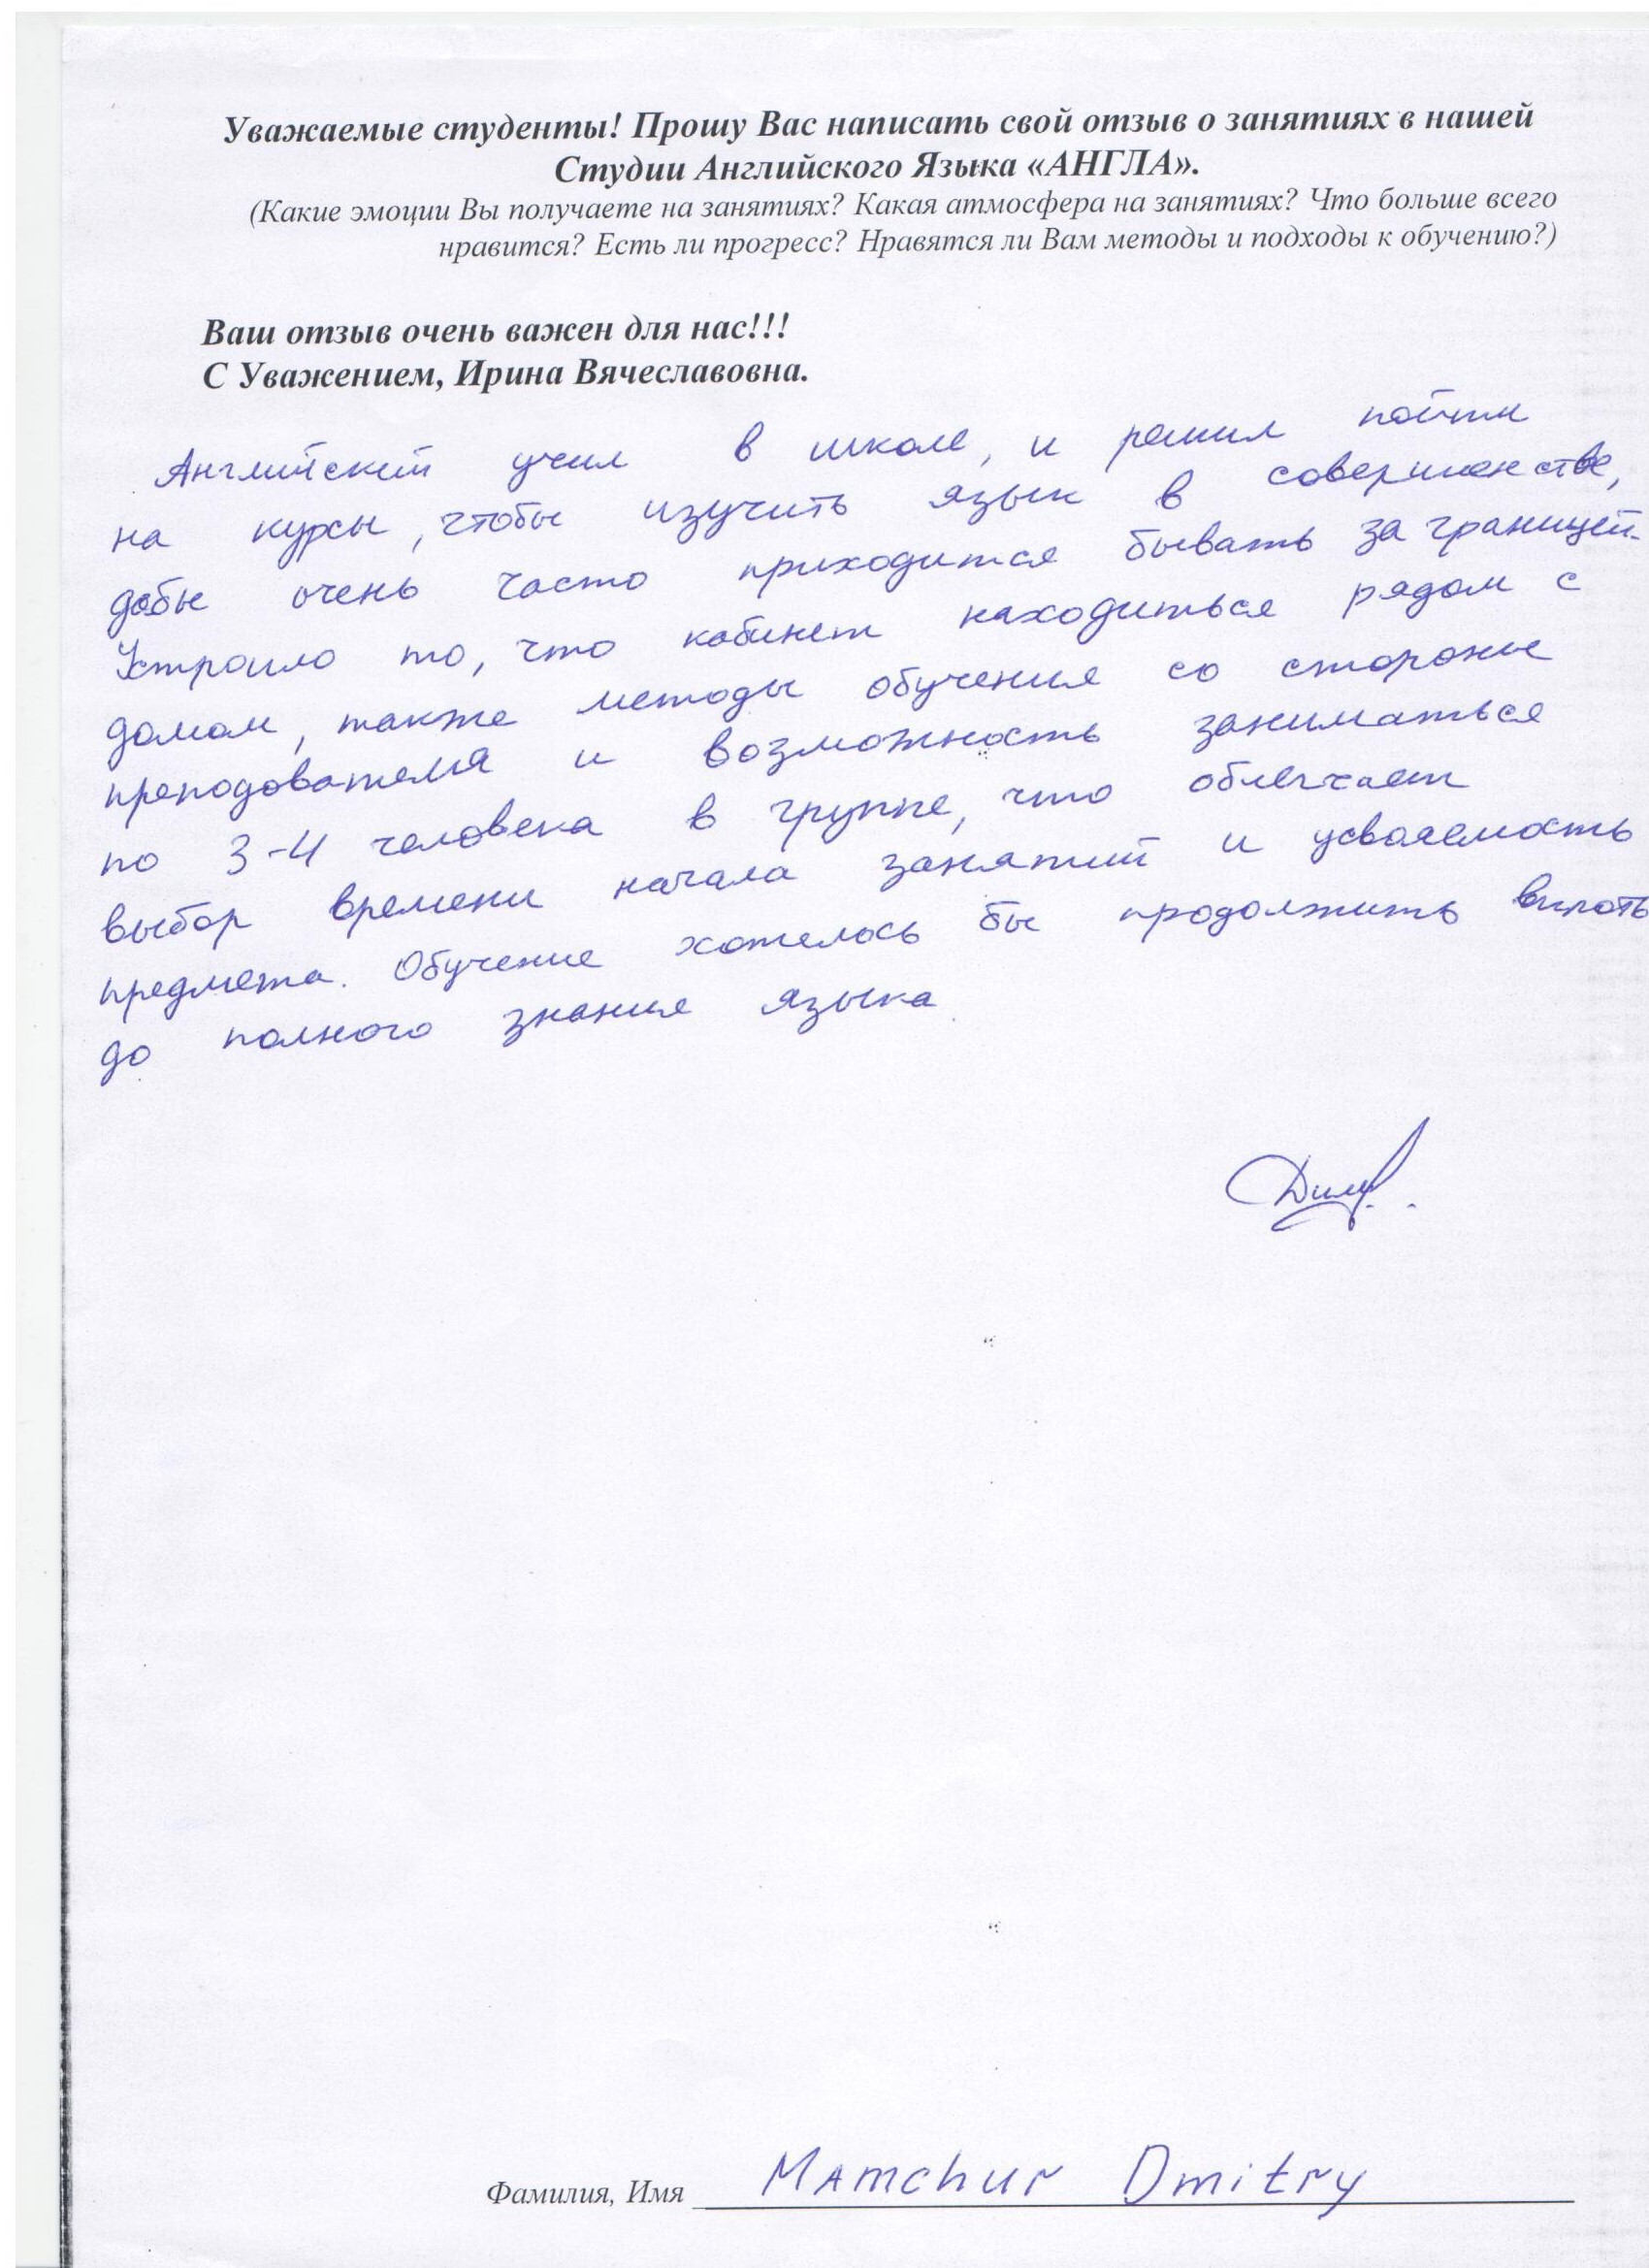 Уважаемые студенты! Прошу Вас написать свой отзыв о занятиях в нашей
Студии Английского Языка «АНГЛА».
(Какие эмоции Вы получаете на занятиях? Какая атмосфера на занятиях? Что больше всего
нравится? Есть ли прогресс? Нравятся ли Вам методы и подходы к обучению?)
Ваш отзыв очень важен для нас!!!
С Уважением, Ирина Вячеславовна.
Английский учил в школе, и решил пойти
на курсы, чтобы изучить язык в совершенстве,
дабы очень часто приходится бывать за границей.
Устроило то, что кабинет находиться рядом с
домом, также методы обучения со стороны
преподователя и возможность заниматься
по 3-4 человека в группе, что облегчает
выбор времени начала занятий и усвоемость
предмета. Обучение хотелось бы продолжить вплоть
до полного знания языка.
Фамилия, Имя Mamchur Dmitry